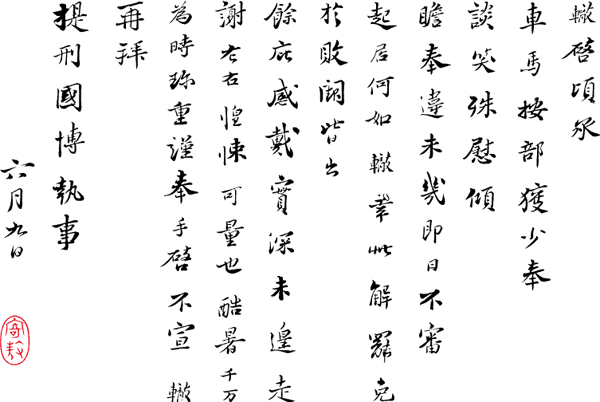 轍啓頃承
車馬按部獲少奉
談笑殊慰傾
瞻奉違未幾即日不審
起居何如轍蒙此解罷免
於敗闕皆出
餘庇感戴實深未遑走
謝左右惶悚可量也酷暑千万
為時珎重謹奉手啓不宣 轍
再拜
提刑國博執事
六月九日